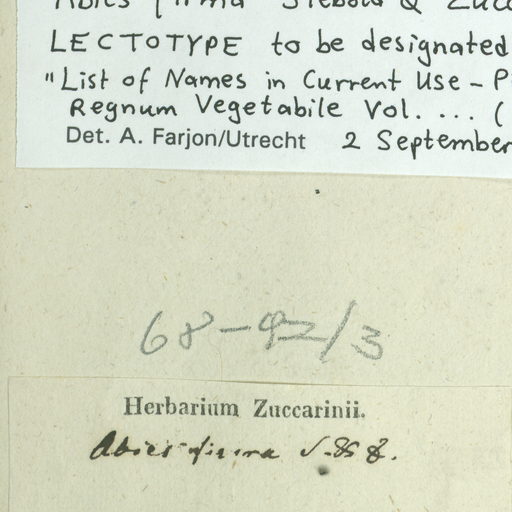 Abies firma Siebold & Zucc
LECTOTYPE to be designated
"List of Names in Current Use - P
Regnum Vegetabile Vol. ... (
Det. A. Farjon/Utrecht 2 September
68-92/3
Herbarium Zuccarinii.
Abies firma S. & Z.